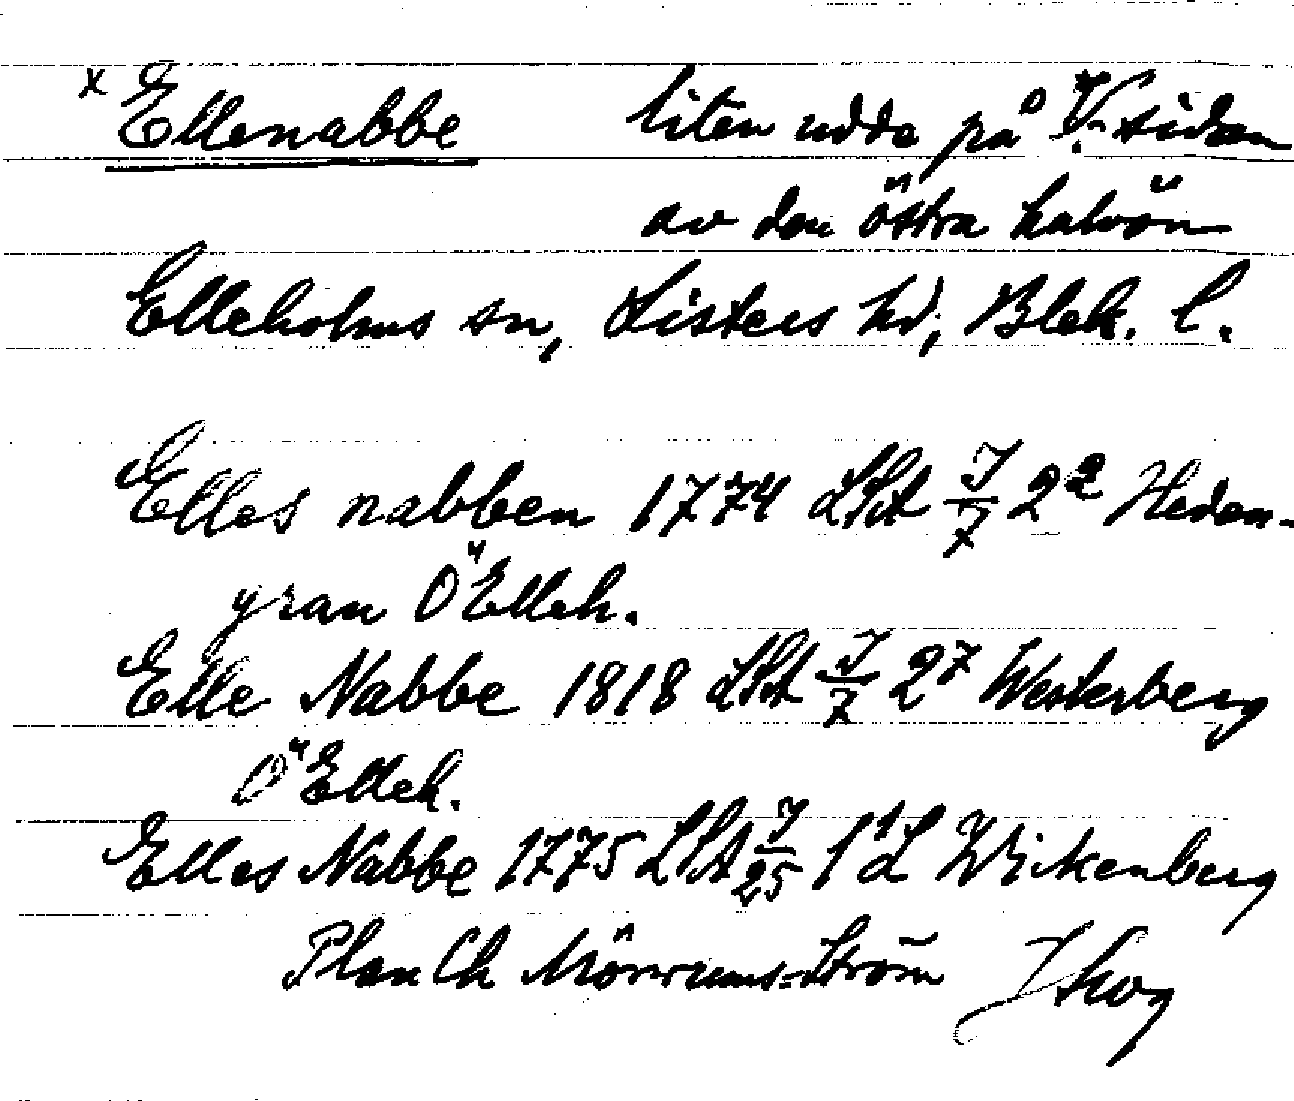 x Ellenabbe liten udde på V. sidan
av den östra halvön
Elleholms sn, Listers hd, Blek. l.
Elles nabben 1774 LSA J/7 2² Heden-
gran Ö Elleh.
Elle Nabbe 1818 LSA J/7 2⁷ Westerberg
Ö Elleh.
Elles Nabbe 1775 LSA J/25 1¹ L Wickenberg
Plan Ch Mörrums-ström JSkog